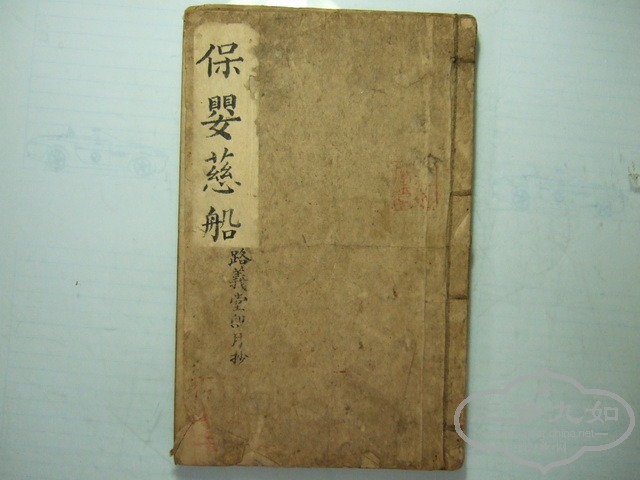 保嬰慈船
路義堂印月抄
九如